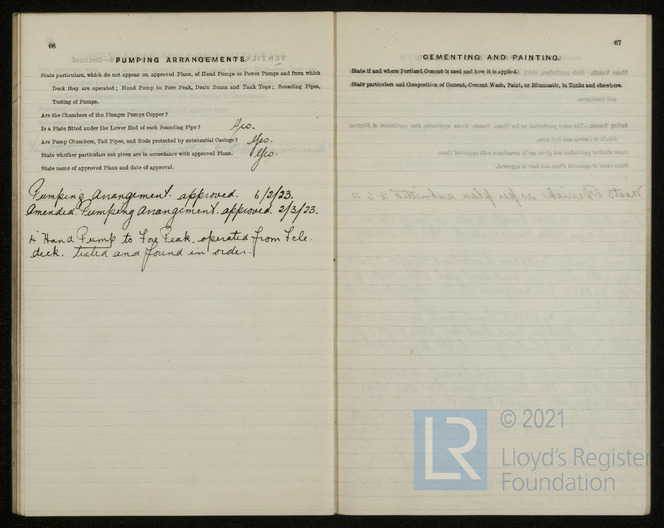 66
PUMPING ARRANGEMENTS.
State particulars, which do not appear on approved Plans, of Hand Pumps or Power Pumps and from which
Deck they are operated; Hand Pump to Fore Peak, Drain Boxes and Tank Tops; Sounding Pipes,
Testing of Pumps.
Are the Chambers of the Plunger Pumps Copper?
Is a Plate fitted under the Lower End of each Sounding Pipe? Yes.
Are Pump Chambers, Tail Pipes, and Rods protected by substantial Casings? Yes.
State whether particulars not given are in accordance with approved Plans. Yes.
State name of approved Plans and date of approval.
Pumping Arrangement approved. 6/2/23.
Amended Pumping Arrangement approved. 2/3/23.
Hand Pump to Fore Peak operated from Fcle.
deck. tested and found in order.
67
CEMENTING AND PAINTING.
State if and where Portland Cement is used and how it is applied.
State particulars and Composition of Cement, Cement Wash, Paint, or Bitumastic, in Tanks and elsewhere.
LR
© 2021
Lloyd's Register
Foundation